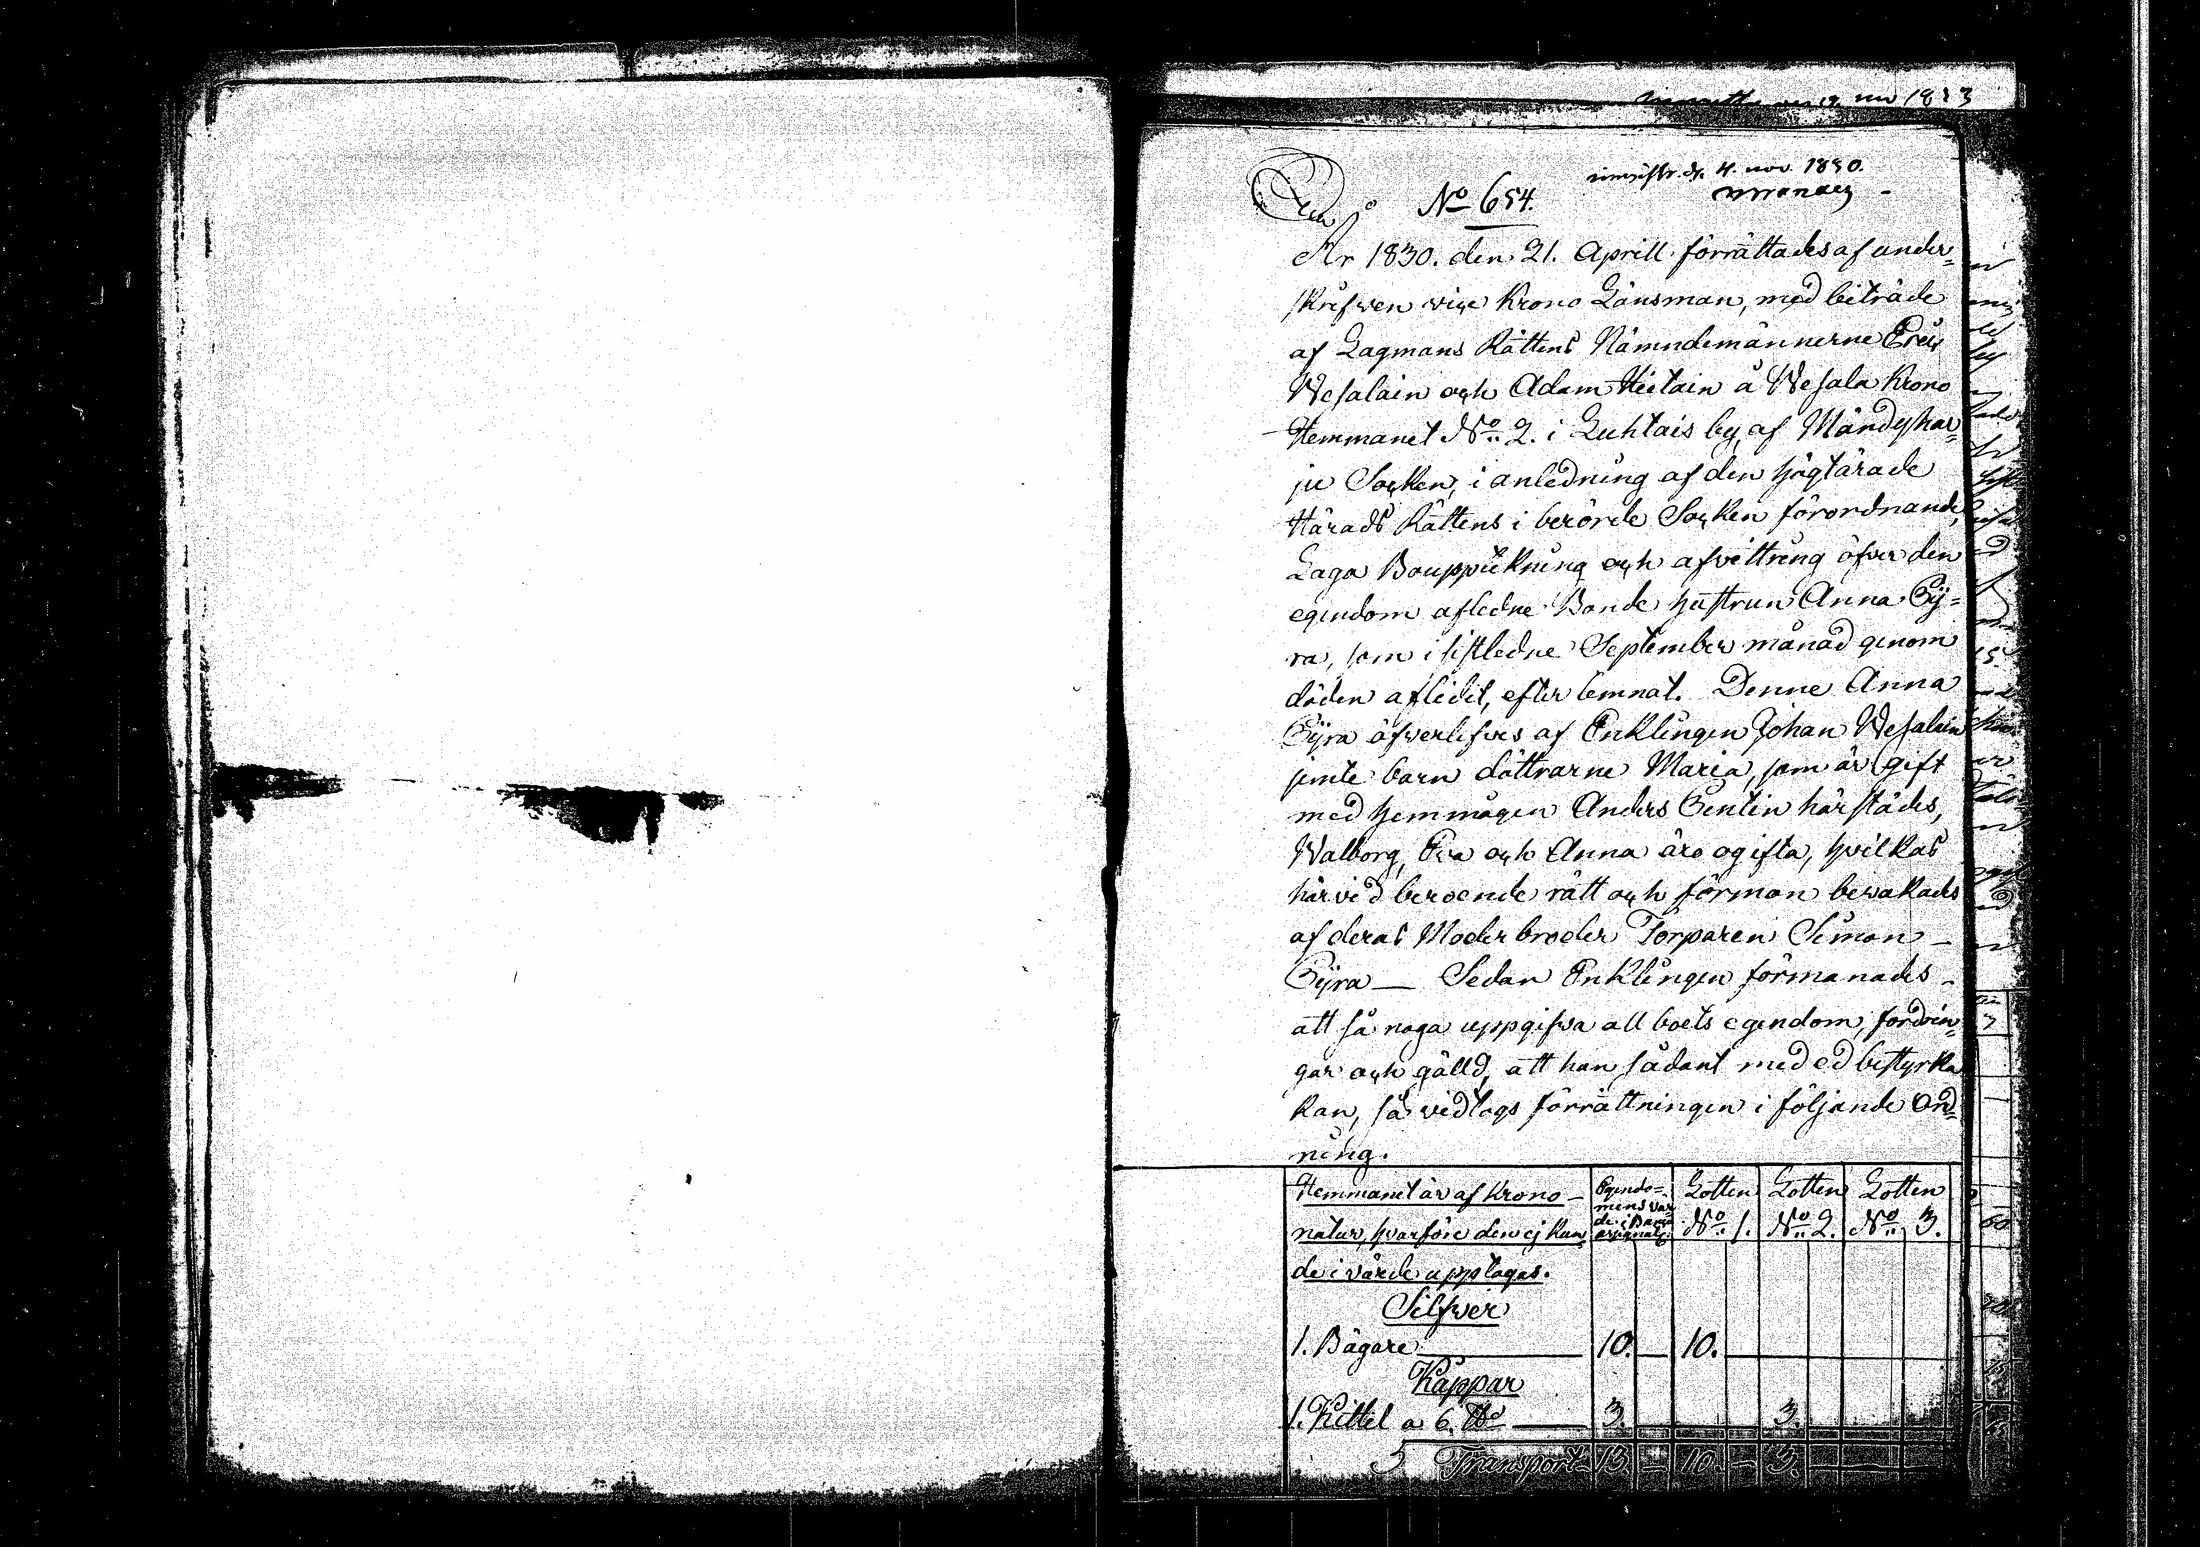 1823
d. 4. nov. 1830.
No 654.
År 1830. den 21. Aprill förrättades af under=
skrefven vice Krono Länsman, med biträde
af Lagmans Rättens Nämndemännerne Eric
Wesalain och Adam Hietain å Wesala Krono
Hemmanet No 2. i Luhtais by, af Mändyhar=
ju Socken, i anledning af den högtärade
Härads Rättens i berörde Socken förordnande,
Laga Bouppteckning och afvittring öfver den
egendom afledne Bonde hustrun Anna Pÿ=
ra, som i sistledne September månad genom
döden aflidit, efter lemnat. Denne Anna
Pÿra öfwerlefves af Enklingen Johan Wesalain
jemte barn döttrarne Maria, som är gift
med hemmågen Anders Pentin härstädes,
Walborg, Eva och Anna äro ogifta, hvilkas
härvid beroende rätt och förmon bevakades
af deras Moderbroder Torparen Simon
Pÿra — Sedan Enklingen förmanades
att så noga uppgifva all boets egendom, fordrin=
gar och gälld, att han sådant med ed bestyrka
kan, så vidtogs förrättningen i följande Ord=
ning.
Hemmanet är af Krono
natur, hvarföre den ej kun=
de i värde upptagas.
Egendo=
mens vär=
de i Banco
assignat.
Lotten
No 1.
Lotten
No 2.
Lotten
No 3.
Silfwer
1. Bägare 10. — 10.
Kåppar
1. Kittel a 6. 3. 3.
Transport 13. — 10. — 3.